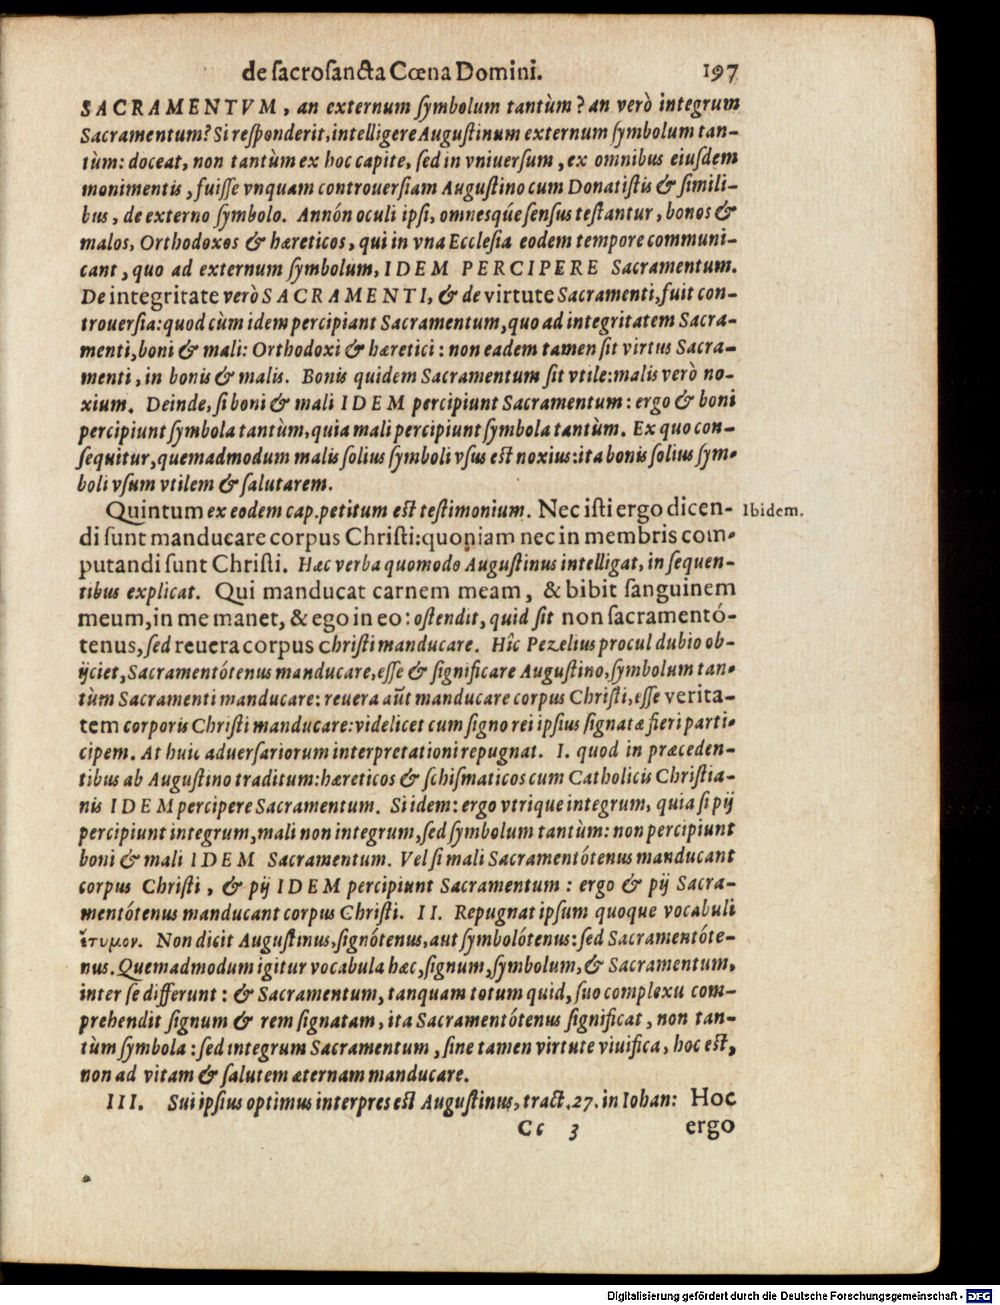 de sacrosancta Cœna Domini. 197
SACRAMENTVM, an externum symbolum tantùm? an verò integrum
Sacramentum? Si responderit, intelligere Augustinum externum symbolum tan-
tùm: doceat, non tantùm ex hoc capite, sed in vniuersum, ex omnibus eiusdem
monimentis, fuisse vnquam controuersiam Augustino cum Donatistis & simili-
bus, de externo symbolo. Annón oculi ipsi, omnesqúe sensus testantur, bonos &
malos, Orthodoxos & hæreticos, qui in vna Ecclesia eodem tempore communi-
cant, quo ad externum symbolum, IDEM PERCIPERE Sacramentum.
De integritate verò SACRAMENTI, & de virtute Sacramenti, fuit con-
trouersia: quod cùm idem percipiant Sacramentum, quo ad integritatem Sacra-
menti, boni & mali: Orthodoxi & hæretici: non eadem tamen sit virtus Sacra-
menti, in bonis & malis. Bonis quidem Sacramentum sit vtile: malis verò no-
xium. Deinde, si boni & mali IDEM percipiunt Sacramentum: ergo & boni
percipiunt symbola tantùm, quia mali percipiunt symbola tantùm. Ex quo con-
sequitur, quemadmodum malis solius symboli vsus est noxius: ita bonis solius sym-
boli vsum vtilem & salutarem.
Quintum ex eodem cap. petitum est testimonium. Nec isti ergo dicen- Ibidem.
di sunt manducare corpus Christi: quoniam nec in membris com-
putandi sunt Christi. Hæc verba quomodo Augustinus intelligat, in sequen-
tibus explicat. Qui manducat carnem meam, & bibit sanguinem
meum, in me manet, & ego in eo: ostendit, quid sit non sacramentó-
tenus, sed reuera corpus christi manducare. Hîc Pezelius procul dubio ob-
ijciet, Sacramentótenus manducare, esse & significare Augustino, symbolum tan-
tùm Sacramenti manducare: reuera aũt manducare corpus Christi, esse verita-
tem corporis Christi manducare: videlicet cum signo rei ipsius signatæ fieri parti-
cipem. At huic aduersariorum interpretationi repugnat. I. quod in præceden-
tibus ab Augustino traditum: hæreticos & schismaticos cum Catholicis Christia-
nis IDEM percipere Sacramentum. Si idem: ergo vtrique integrum, quia si pij
percipiunt integrum, mali non integrum, sed symbolum tantùm: non percipiunt
boni & mali IDEM Sacramentum. Vel si mali Sacramentótenus manducant
corpus Christi, & pij IDEM percipiunt Sacramentum: ergo & pij Sacra-
mentótenus manducant corpus Christi. II. Repugnat ipsum quoque vocabuli
ἔτυμον. Non dicit Augustinus, signótenus, aut symbolótenus: sed Sacramentóte-
nus. Quemadmodum igitur vocabula hæc, signum, symbolum, & Sacramentum,
inter se differunt: & Sacramentum, tanquam totum quid, suo complexu com-
prehendit signum & rem signatam, ita Sacramentótenus significat, non tan-
tùm symbola: sed integrum Sacramentum, sine tamen virtute viuifica, hoc est,
non ad vitam & salutem æternam manducare.
III. Sui ipsius optimus interpres est Augustinus, tract. 27. in Iohan: Hoc
Cc 3 ergo
Digitalisierung gefördert durch die Deutsche Forschungsgemeinschaft - DFG